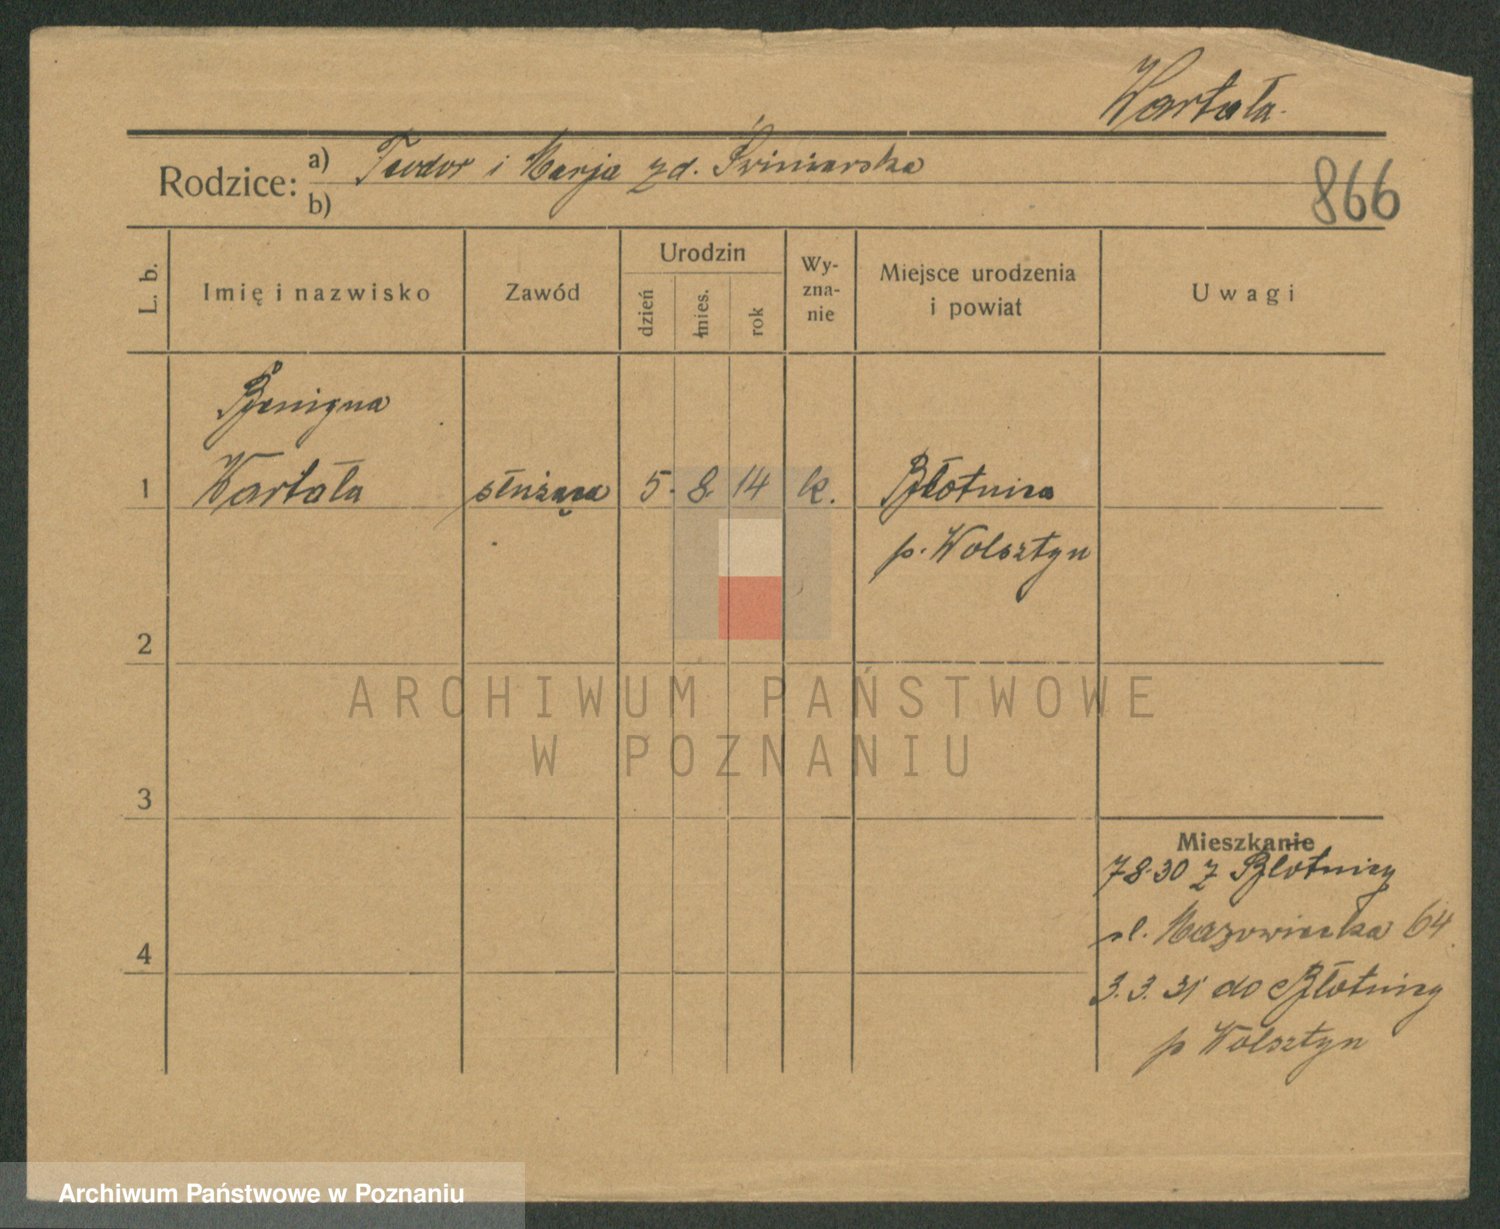 Wartała.
Rodzice: a) Teodor i Marja zd. Świniarska
b)
866
L. b.
Imię i nazwisko
Zawód
Urodzin
dzień
mies.
rok
Wy-
zna-
nie
Miejsce urodzenia
i powiat
Uwagi
Benigna
1 Wartała służąca 5. 8. 14 k. Błotnica
p. Wolsztyn
2
3
4
Mieszkanie
7 8 30 z Błotnicy
ul. Mazowiecka 64
3.3.31 do Błotnicy
p Wolsztyn
ARCHIWUM PAŃSTWOWE
W POZNANIU
Archiwum Państwowe w Poznaniu